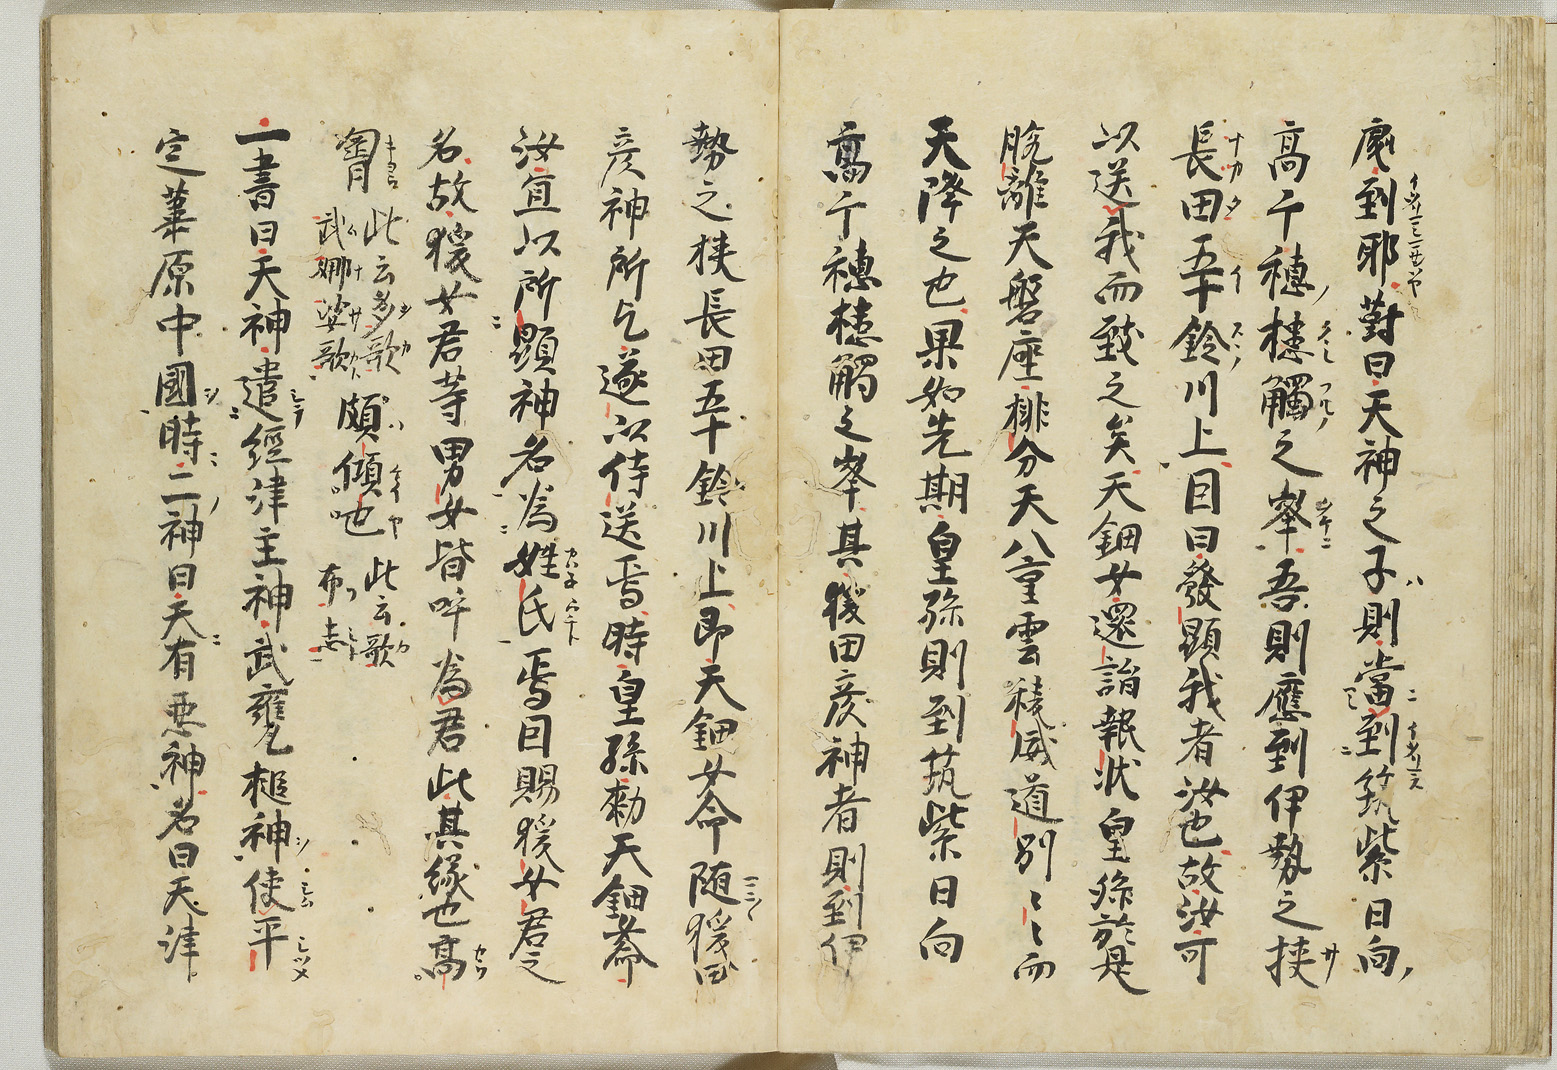 處到耶對曰天神之子則當到筑紫日向
高千穗槵觸之峯吾則應到伊勢之挾
長田五十鈴川上因曰發顯我者汝也故汝可
以送我而致之矣天鈿女還詣報狀皇孫於是
脫離天磐座排分天八重雲稜威道別〻〻而
天降之也果如先期皇孫則到筑紫日向
高千穗槵觸之峯其猨田彥神者則到伊
勢之挾長田五十鈴川上即天鈿女命隨猨田
彥神所乞遂以侍送焉時皇孫勑天鈿女命
汝宜以所顯神名為姓氏焉因賜猨女君之
名故猨女君等男女皆呼為君此其緣也高
胷此云多歌武娜娑歌頗傾也此云歌布志
一書曰天神遣經津主神武甕槌神使平
定葦原中國時二神曰天有惡神名曰天津